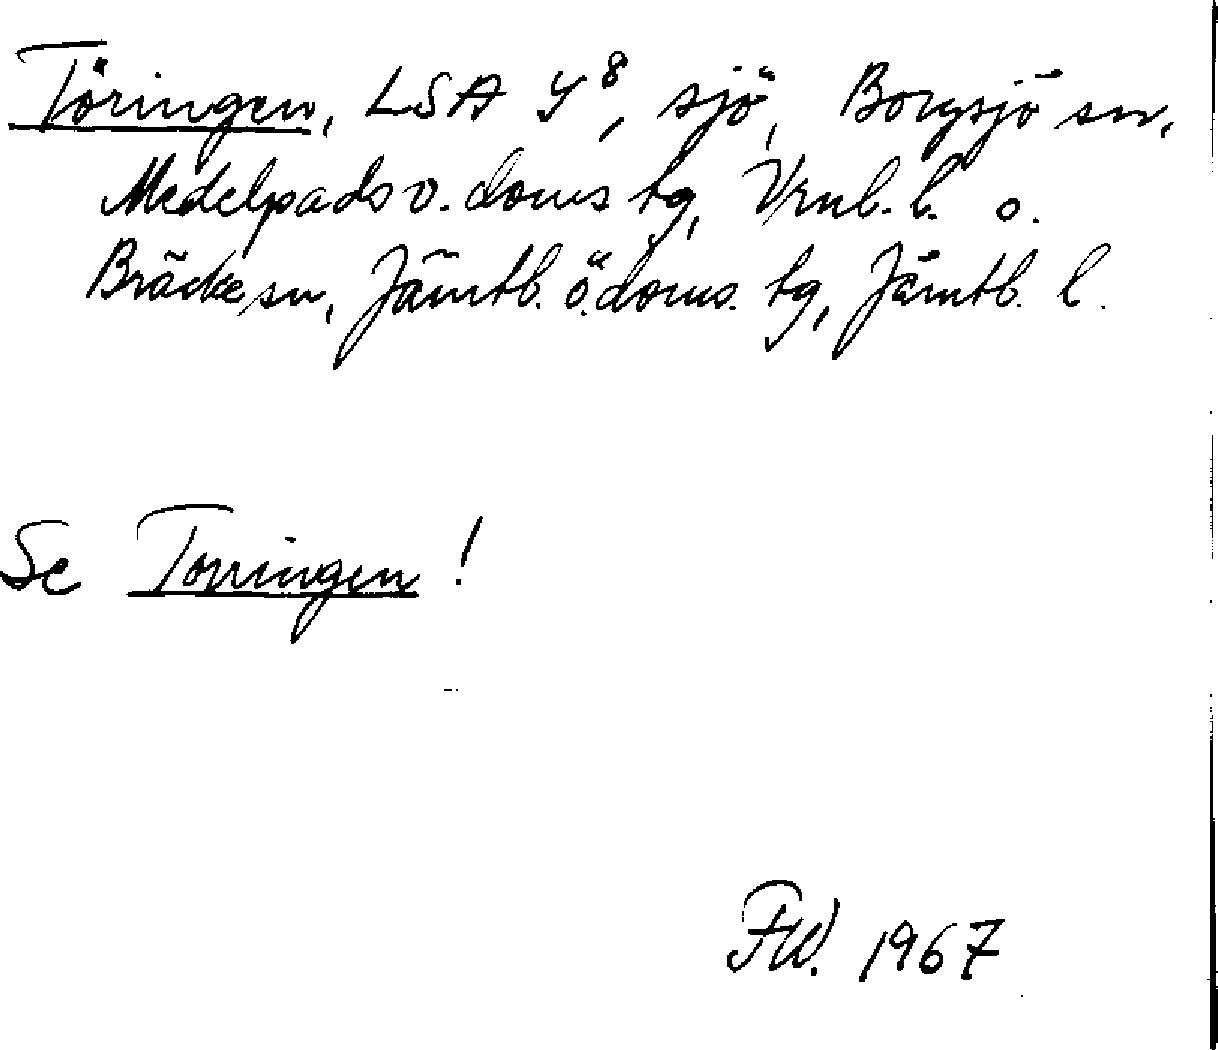 Töringen, LSA Y8, sjö, Borgsjö sn,
Medelpads v. doms tg, Vrnl. l. o.
Bräcke sn, Jämtl. ö. doms. tg, Jämtl. l.
Se Torringen !
FW. 1967